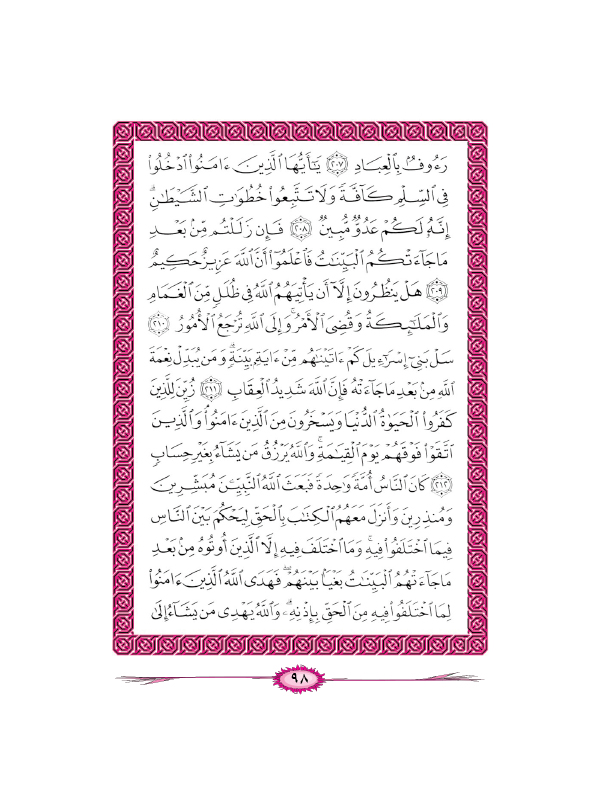 رَءُوفٌۢ بِالْعِبَادِ ٢٠٧ يَٰٓأَيُّهَا الَّذِينَ ءَامَنُوا ادْخُلُوا
فِي السِّلْمِ كَآفَّةً وَلَا تَتَّبِعُوا خُطُوَٰتِ الشَّيْطَٰنِۚ
إِنَّهُۥ لَكُمْ عَدُوٌّ مُّبِينٌ ٢٠٨ فَإِن زَلَلْتُم مِّنۢ بَعْدِ
مَا جَآءَتْكُمُ الْبَيِّنَٰتُ فَاعْلَمُوٓا أَنَّ اللَّهَ عَزِيزٌ حَكِيمٌ
٢٠٩ هَلْ يَنظُرُونَ إِلَّآ أَن يَأْتِيَهُمُ اللَّهُ فِي ظُلَلٍ مِّنَ الْغَمَامِ
وَالْمَلَٰٓئِكَةُ وَقُضِيَ الْأَمْرُۚ وَإِلَى اللَّهِ تُرْجَعُ الْأُمُورُ ٢١٠
سَلْ بَنِيٓ إِسْرَٰٓءِيلَ كَمْ ءَاتَيْنَٰهُم مِّنْ ءَايَةٍۭ بَيِّنَةٍۗ وَمَن يُبَدِّلْ نِعْمَةَ
اللَّهِ مِنۢ بَعْدِ مَا جَآءَتْهُ فَإِنَّ اللَّهَ شَدِيدُ الْعِقَابِ ٢١١ زُيِّنَ لِلَّذِينَ
كَفَرُوا الْحَيَوٰةُ الدُّنْيَا وَيَسْخَرُونَ مِنَ الَّذِينَ ءَامَنُواۘ وَالَّذِينَ
اتَّقَوْا فَوْقَهُمْ يَوْمَ الْقِيَٰمَةِۗ وَاللَّهُ يَرْزُقُ مَن يَشَآءُ بِغَيْرِ حِسَابٍ
٢١٢ كَانَ النَّاسُ أُمَّةً وَٰحِدَةً فَبَعَثَ اللَّهُ النَّبِيِّـۧنَ مُبَشِّرِينَ
وَمُنذِرِينَ وَأَنزَلَ مَعَهُمُ الْكِتَٰبَ بِالْحَقِّ لِيَحْكُمَ بَيْنَ النَّاسِ
فِيمَا اخْتَلَفُوا فِيهِۚ وَمَا اخْتَلَفَ فِيهِ إِلَّا الَّذِينَ أُوتُوهُ مِنۢ بَعْدِ
مَا جَآءَتْهُمُ الْبَيِّنَٰتُ بَغْيًۢا بَيْنَهُمْۖ فَهَدَى اللَّهُ الَّذِينَ ءَامَنُوا
لِمَا اخْتَلَفُوا فِيهِ مِنَ الْحَقِّ بِإِذْنِهِۦۗ وَاللَّهُ يَهْدِي مَن يَشَآءُ إِلَىٰ
٩٨